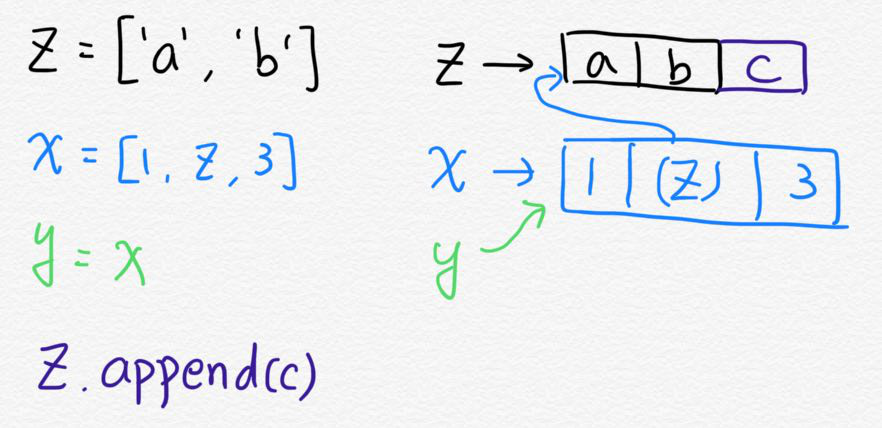 Z = ['a', 'b']
x = [1, z, 3]
y = x
Z.append(c)
Z → a b c
x → 1 (Z) 3
y